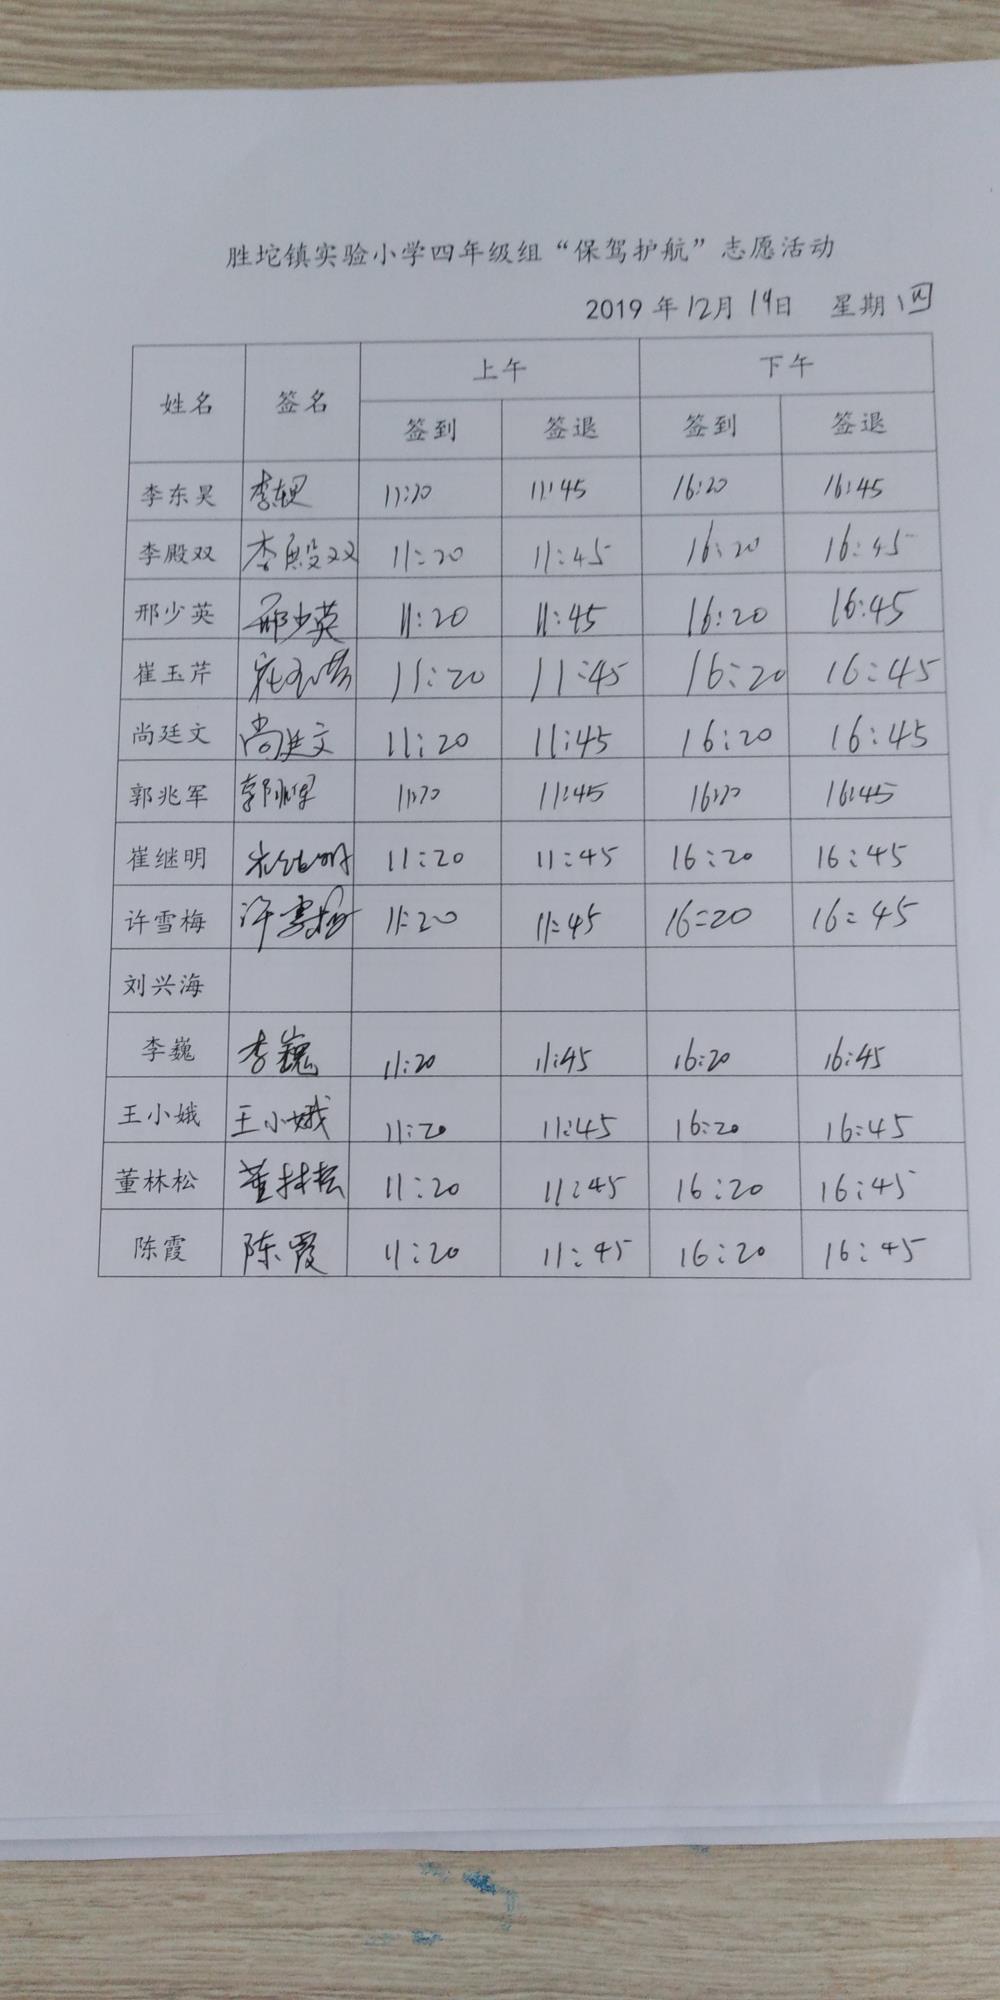 胜坨镇实验小学四年级组“保驾护航”志愿活动
2019年12月19日 星期四
姓名 签名 上午 下午
签到 签退 签到 签退
李东昊 李东昊 11:20 11:45 16:20 16:45
李殿双 李殿双 11:20 11:45 16:20 16:45
邢少英 邢少英 11:20 11:45 16:20 16:45
崔玉芹 崔玉芹 11:20 11:45 16:20 16:45
尚廷文 尚廷文 11:20 11:45 16:20 16:45
郭兆军 郭兆军 11:20 11:45 16:20 16:45
崔继明 崔继明 11:20 11:45 16:20 16:45
许雪梅 许雪梅 11:20 11:45 16:20 16:45
刘兴海
李巍 李巍 11:20 11:45 16:20 16:45
王小娥 王小娥 11:20 11:45 16:20 16:45
董林松 董林松 11:20 11:45 16:20 16:45
陈霞 陈霞 11:20 11:45 16:20 16:45